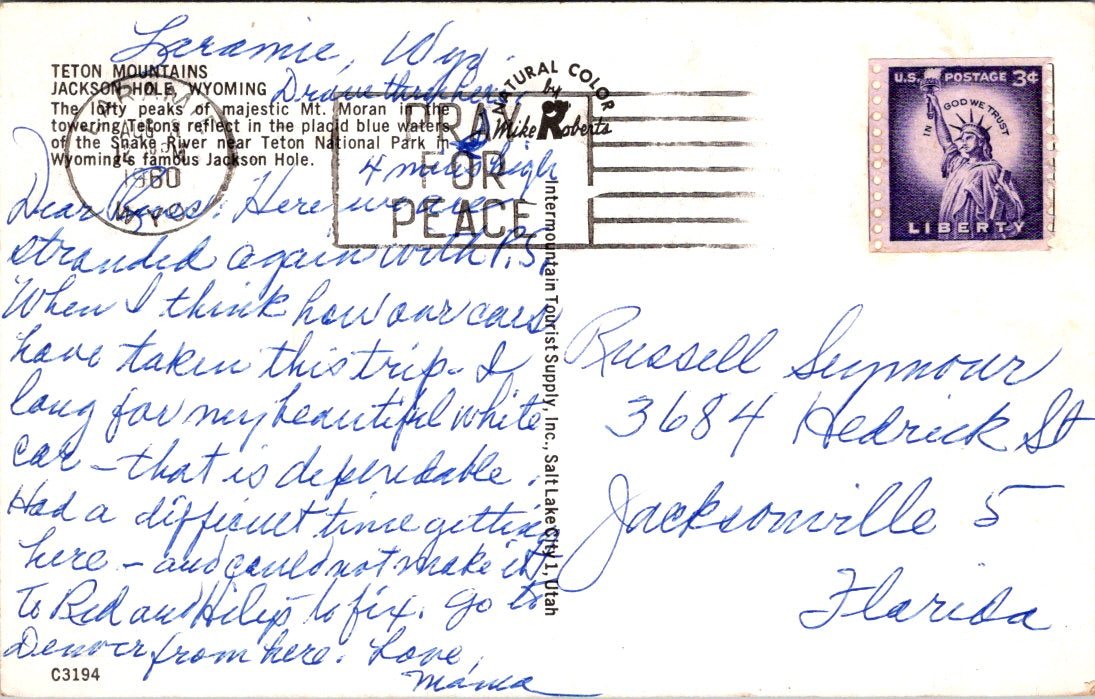 Laramie, Wyo.
TETON MOUNTAINS
JACKSON HOLE, WYOMING
The lofty peaks of majestic Mt. Moran in the
towering Tetons reflect in the placid blue waters
of the Snake River near Teton National Park in
Wyoming's famous Jackson Hole.
Drove thru here
4 miles high
LARAMIE
AUG
1960
WYO
PRAY
FOR
PEACE
NATURAL COLOR
by
Mike Roberts
U.S. POSTAGE 3¢
IN GOD WE TRUST
LIBERTY
Dear Russ: Here we are
stranded again with P.S.
When I think how our cars
have taken this trip - I
long for my beautiful white
car - that is dependable.
Had a difficult time getting
here - and could not make it
to Red and to fix. Go to
Denver from here. Love,
Mama
Intermountain Tourist Supply, Inc., Salt Lake City 1, Utah
Russell Seymour
3684 Hedrick St
Jacksonville 5
Florida
C3194